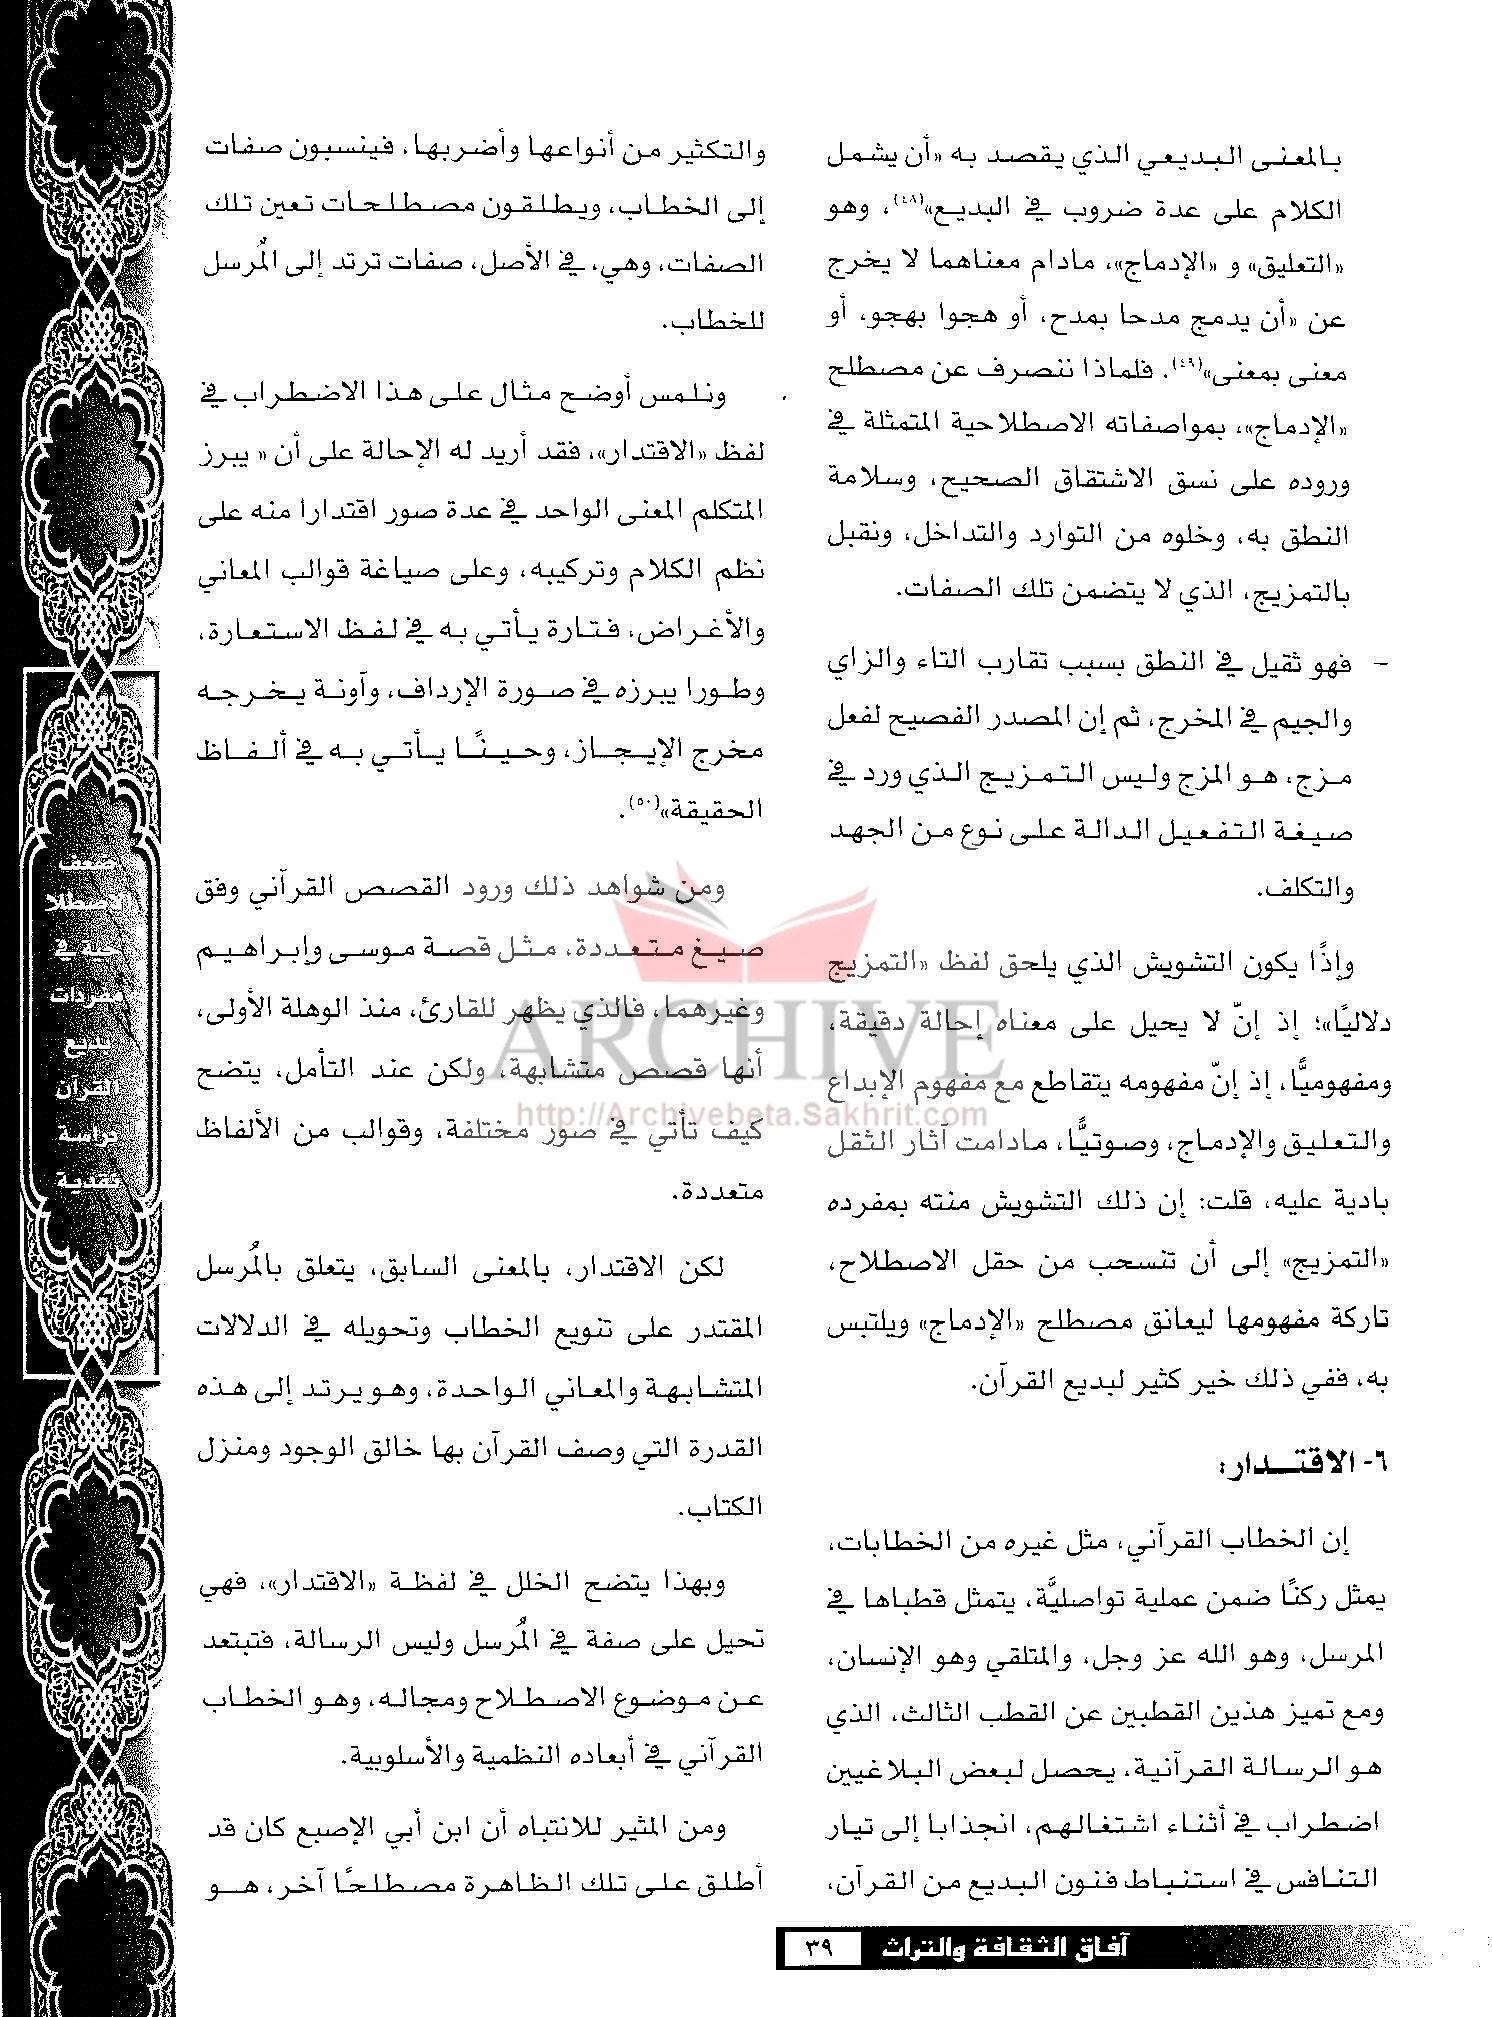 بالمعنى البديعي الذي يقصد به «أن يشمل
الكلام على عدة ضروب في البديع»(٤٨)، وهو
«التعليق» و «الإدماج»، مادام معناهما لا يخرج
عن «أن يدمج مدحا بمدح، أو هجوا بهجو، أو
معنى بمعنى»(٤٩). فلماذا ننصرف عن مصطلح
«الإدماج»، بمواصفاته الاصطلاحية المتمثلة في
وروده على نسق الاشتقاق الصحيح، وسلامة
النطق به، وخلوه من التوارد والتداخل، ونقبل
بالتمزيج، الذي لا يتضمن تلك الصفات.
- فهو ثقيل في النطق بسبب تقارب التاء والزاي
والجيم في المخرج، ثم إن المصدر الفصيح لفعل
مزج، هو المزج وليس التمزيج الذي ورد في
صيغة التفعيل الدالة على نوع من الجهد
والتكلف.
وإذًا يكون التشويش الذي يلحق لفظ «التمزيج
دلاليًا»؛ إذ إنّ لا يحيل على معناه إحالة دقيقة،
ومفهوميًّا، إذ إنّ مفهومه يتقاطع مع مفهوم الإبداع
والتعليق والإدماج، وصوتيًّا، مادامت آثار الثقل
بادية عليه، قلت: إن ذلك التشويش منته بمفرده
«التمزيج» إلى أن تنسحب من حقل الاصطلاح،
تاركة مفهومها ليعانق مصطلح «الإدماج» ويلتبس
به، ففي ذلك خير كثير لبديع القرآن.
٦- الاقتـــدار:
إن الخطاب القرآني، مثل غيره من الخطابات،
يمثل ركنًا ضمن عملية تواصليَّة، يتمثل قطباها في
المرسل، وهو الله عز وجل، والمتلقي وهو الإنسان،
ومع تميز هذين القطبين عن القطب الثالث، الذي
هو الرسالة القرآنية، يحصل لبعض البلاغيين
اضطراب في أثناء اشتغالهم، انجذابا إلى تيار
التنافس في استنباط فنون البديع من القرآن،
والتكثير من أنواعها وأضربها، فينسبون صفات
إلى الخطاب، ويطلقون مصطلحات تعين تلك
الصفات، وهي، في الأصل، صفات ترتد إلى المُرسل
للخطاب.
ونلمس أوضح مثال على هذا الاضطراب في
لفظ «الاقتدار»، فقد أريد له الإحالة على أن « يبرز
المتكلم المعنى الواحد في عدة صور اقتدارا منه على
نظم الكلام وتركيبه، وعلى صياغة قوالب المعاني
والأغراض، فتارة يأتي به في لفظ الاستعارة،
وطورا يبرزه في صورة الإرداف، وآونة يخرجه
مخرج الإيجاز، وحينًا يأتي به في ألفاظ
الحقيقة»(٥٠).
ومن شواهد ذلك ورود القصص القرآني وفق
صيغ متعددة، مثل قصة موسى وإبراهيم
وغيرهما، فالذي يظهر للقارئ، منذ الوهلة الأولى،
أنها قصص متشابهة، ولكن عند التأمل، يتضح
كيف تأتي في صور مختلفة، وقوالب من الألفاظ
متعددة.
لكن الاقتدار، بالمعنى السابق، يتعلق بالمُرسل
المقتدر على تنويع الخطاب وتحويله في الدلالات
المتشابهة والمعاني الواحدة، وهو يرتد إلى هذه
القدرة التي وصف القرآن بها خالق الوجود ومنزل
الكتاب.
وبهذا يتضح الخلل في لفظة «الاقتدار»، فهي
تحيل على صفة في المُرسل وليس الرسالة، فتبتعد
عن موضوع الاصطلاح ومجاله، وهو الخطاب
القرآني في أبعاده النظمية والأسلوبية.
ومن المثير للانتباه أن ابن أبي الإصبع كان قد
أطلق على تلك الظاهرة مصطلحًا آخر، هـو
ARCHIVE
http://Archivebeta.Sakhrit.com
القرآن
دراسة
نقدية
آفاق الثقافة والتراث ٣٩